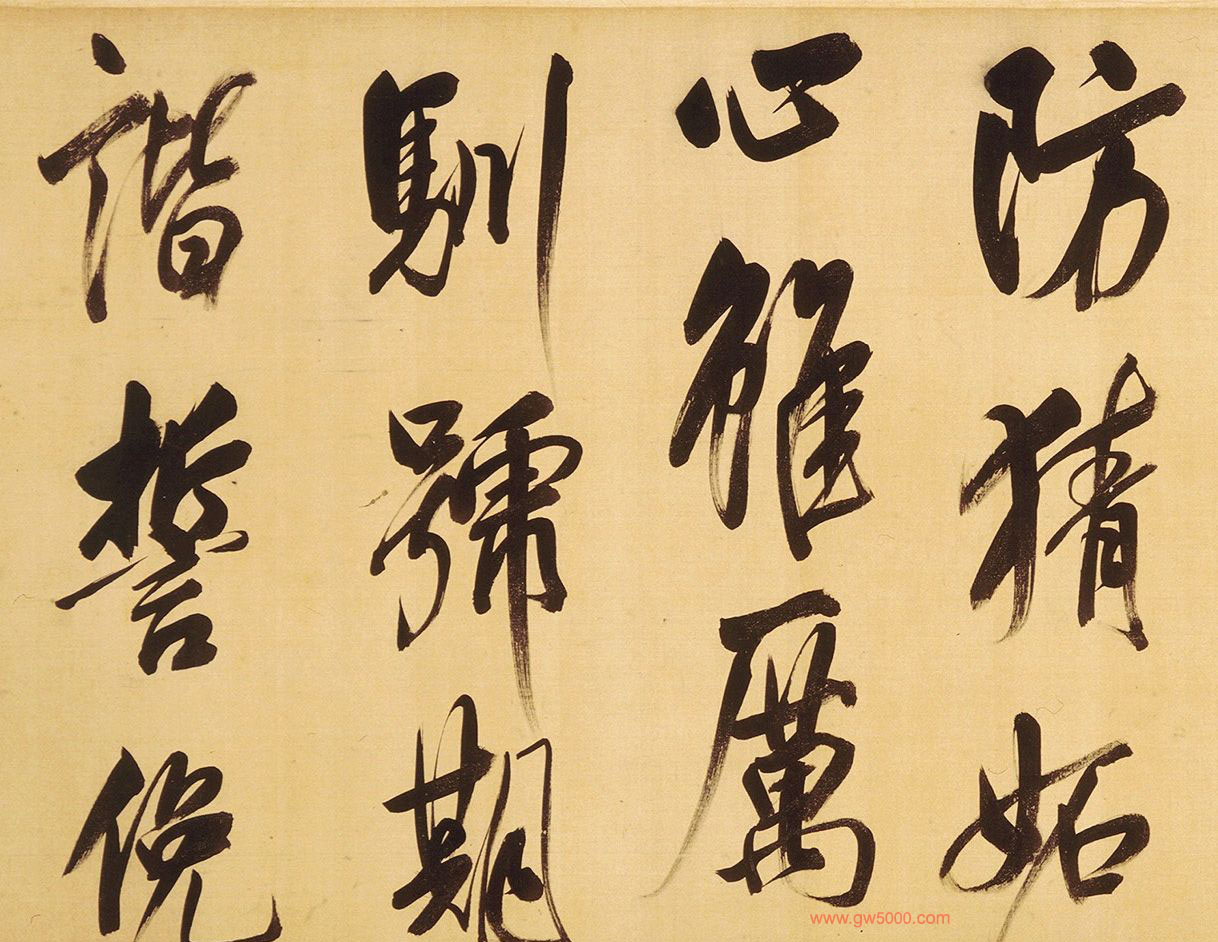 防猜妬
心雖厲
馴號期
諧誓俛
www.gw5000.com